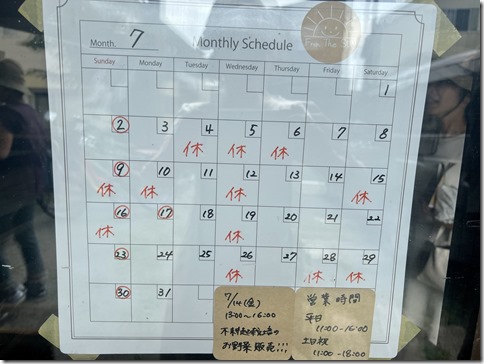 Month. 7 Monthly Schedule
Sunday Monday Tuesday Wednesday Thursday Friday Saturday
1
2 3 4 5 6 7 8
休 休 休
9 10 11 12 13 14 15
休 休 休 休
16 17 18 19 20 21 22
休 休
23 24 25 26 27 28 29
休 休 休
30 31
7/14(金)
13:00〜16:00
お野菜販売!!!
営業時間
平日
11:00-16:00
土日祝
11:00-18:00